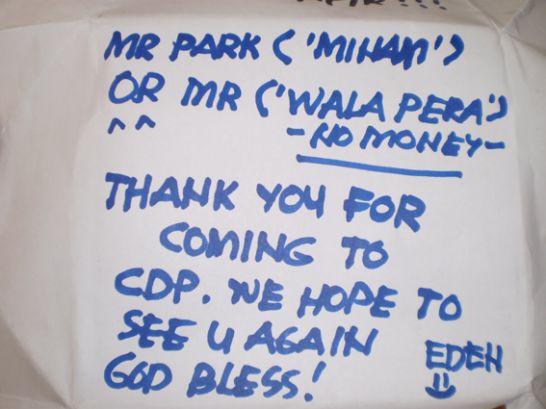 MR PARK ('MINAM')
OR MR ('WALA PERA')
^ ^ -NO MONEY-
THANK YOU FOR
COMING TO
CDP. WE HOPE TO
SEE U AGAIN
GOD BLESS!
EDEN